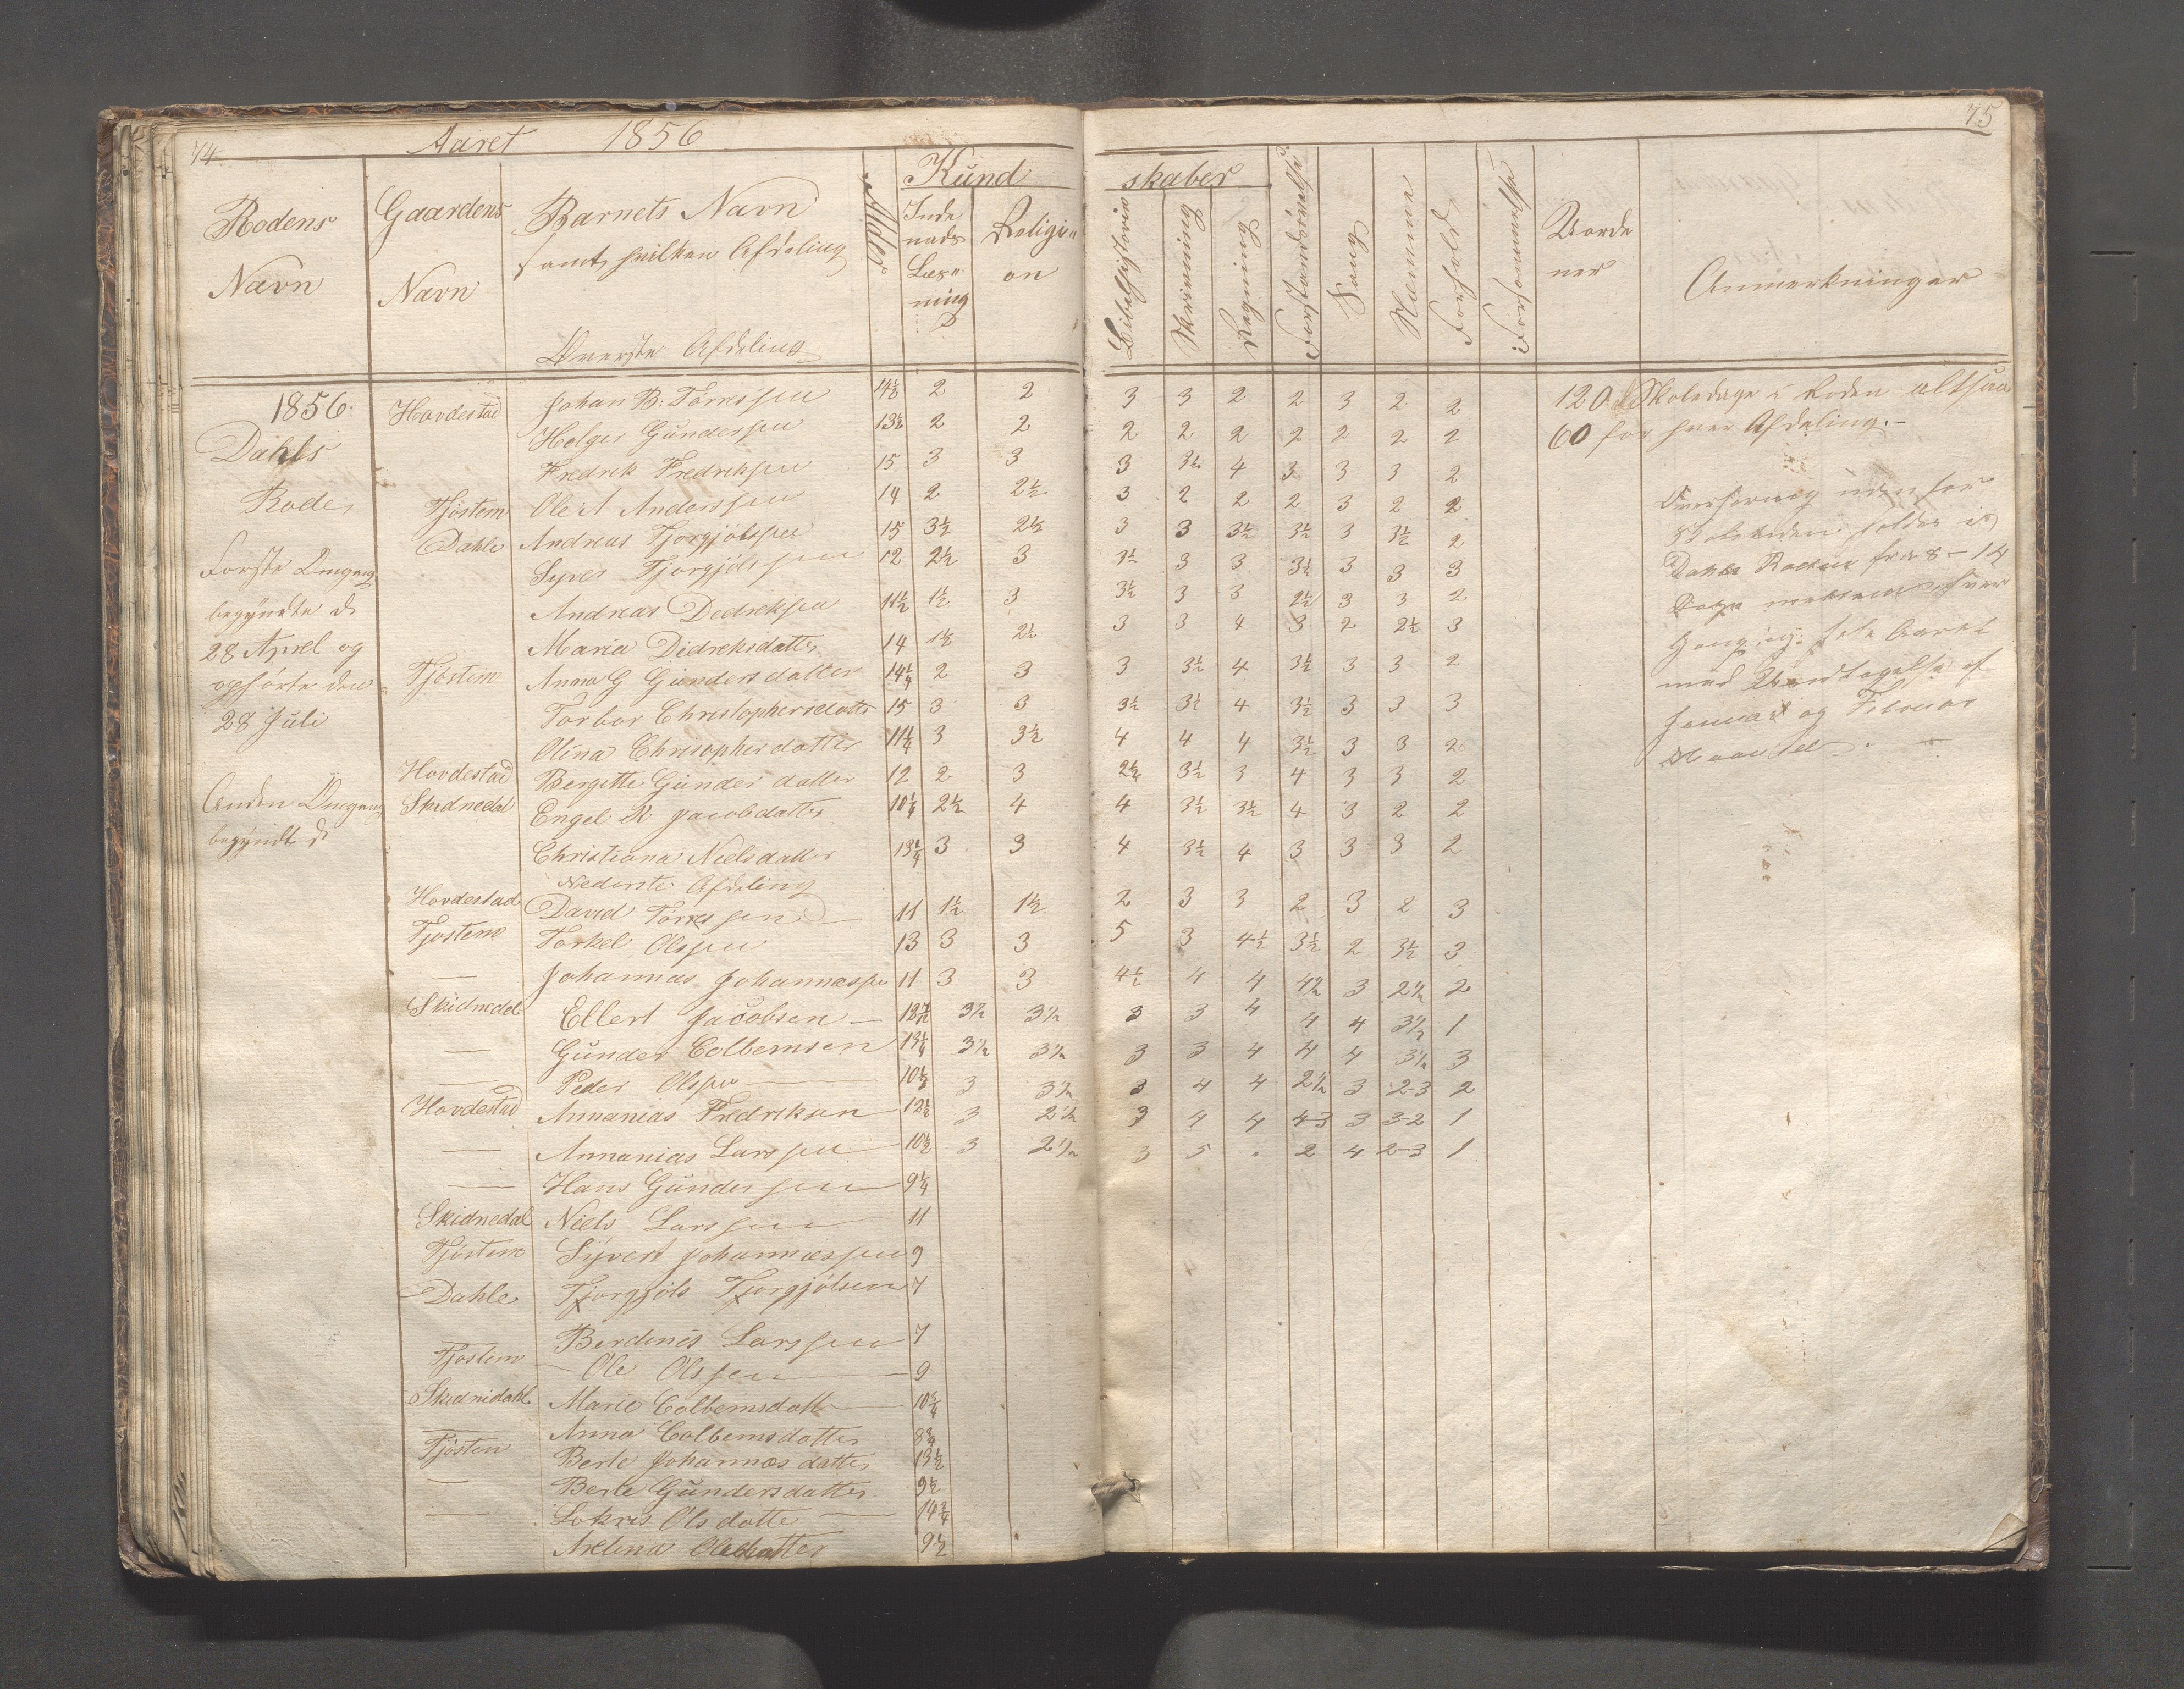 74
Aaret 1856
Rodens Navn | Gaardens Navn | Barnets Navn samt hvilken Afdeling | Alder | Kund
Indenads Læsning | Religion
Øverste Afdeling
1856 Hovdestad Johan B: Torressen 14½ 2 2
Dahls Holger Gunderssen 13½ 2 2
Fredrik Fredriksen 15 3 3
Rode Tjøstem Ole A Anderssen 14 2 2½
Dahle Andreas Tjorgjølssen 15 3½ 2½
Første Omgang Syver Tjorgjølssen 12 2½ 3
begyndte d Andreas Dedreksen 11½ 1½ 3
28 April og Maria Didreksdatter 14 1½ 2½
ophørte den Tjøstem Anna G Gundersdatter 14¼ 2 3
28 Juli Torbor Christophersdatter 15 3 3
Olina Chrisopherdatter 11¼ 3 3½
Hovdestad Bergitte Gunderdatter 12 2 3
Anden Omgang Skidnedal Engel K Jacobdatter 10¼ 2½ 4
begyndt d Christiana Nielsdatter 13¼ 3 3
Nederste Afdeling
Hovdestad David Torressen 11 1½ 1½
Tjøstem Torkel Olssen 13 3 3
— Johannias Johannessen 11 3 3
Skidnedal Ellert Jacobsen — 3½ 3½
— Gunder Colbemsen 13¼ 3½ 3½
— Peder Olssen 10½ 3 3½
Hovdestad Annanias Fredriksen 12½ 3 2½
— Annanias Larssen 10½ 3 2½
— Hans Gunderssen 9¼
Skidnedal Niels Larssen 11
Tjøstem Syvert Johannessen 9
Dahle Tjorgjøls Tjorgjølsen 7
Berdines Larssen 7
Tjøstem Ole Olssen 9
Skidnidahl Marie Colbemsdatt
Anna Colbemsdatter
Tjøsten Berte Johannesdatter 13½
— Berte Gundersdatter 9½
— Lokris Olsdatte 14¾
Arelina Olesdatter 9½
75
skaber
Bibelhistorie | Skrivning | Regning | Forstandsøvelse | Sang | Nemme | Forhold | Forsømmelse | Vordener | Anmerkninger
3 3 2 2 3 2 2 120 Skoledage i Roden altsaa
2 2 2 2 2 2 2 60 for hver Afdeling.-
3 3½ 4 3 3 3 2
3 2 2 2 3 2 2
3 3 3½ 3½ 3 3½ 2
3½ 3 3 3½ 3 3 3 Dahls Roden fra 8-14
3½ 3 3 2½ 3 3 2
3 3 4 3 2 2½ 3
3 3½ 4 3½ 3 3 2 med Undtagelse af
3½ 3½ 4 3½ 3 3 3 Januar og Februar
4 4 4 3½ 3 3 2 Maaned.
2½ 3½ 3 4 3 3 2
4 3½ 3½ 4 3 2 2
4 3½ 4 3 3 3 2
2 3 3 2 3 2 3
5 3 4½ 3½ 2 3½ 3
4½ 4 4 4½ 3 2½ 2
3 3 4 4 4 3½ 1
3 3 4 4 4 3½ 3
3 4 4 2½ 3 2-3 2
3 4 4 4-3 3 3-2 1
3 5 . 2 4 2-3 1